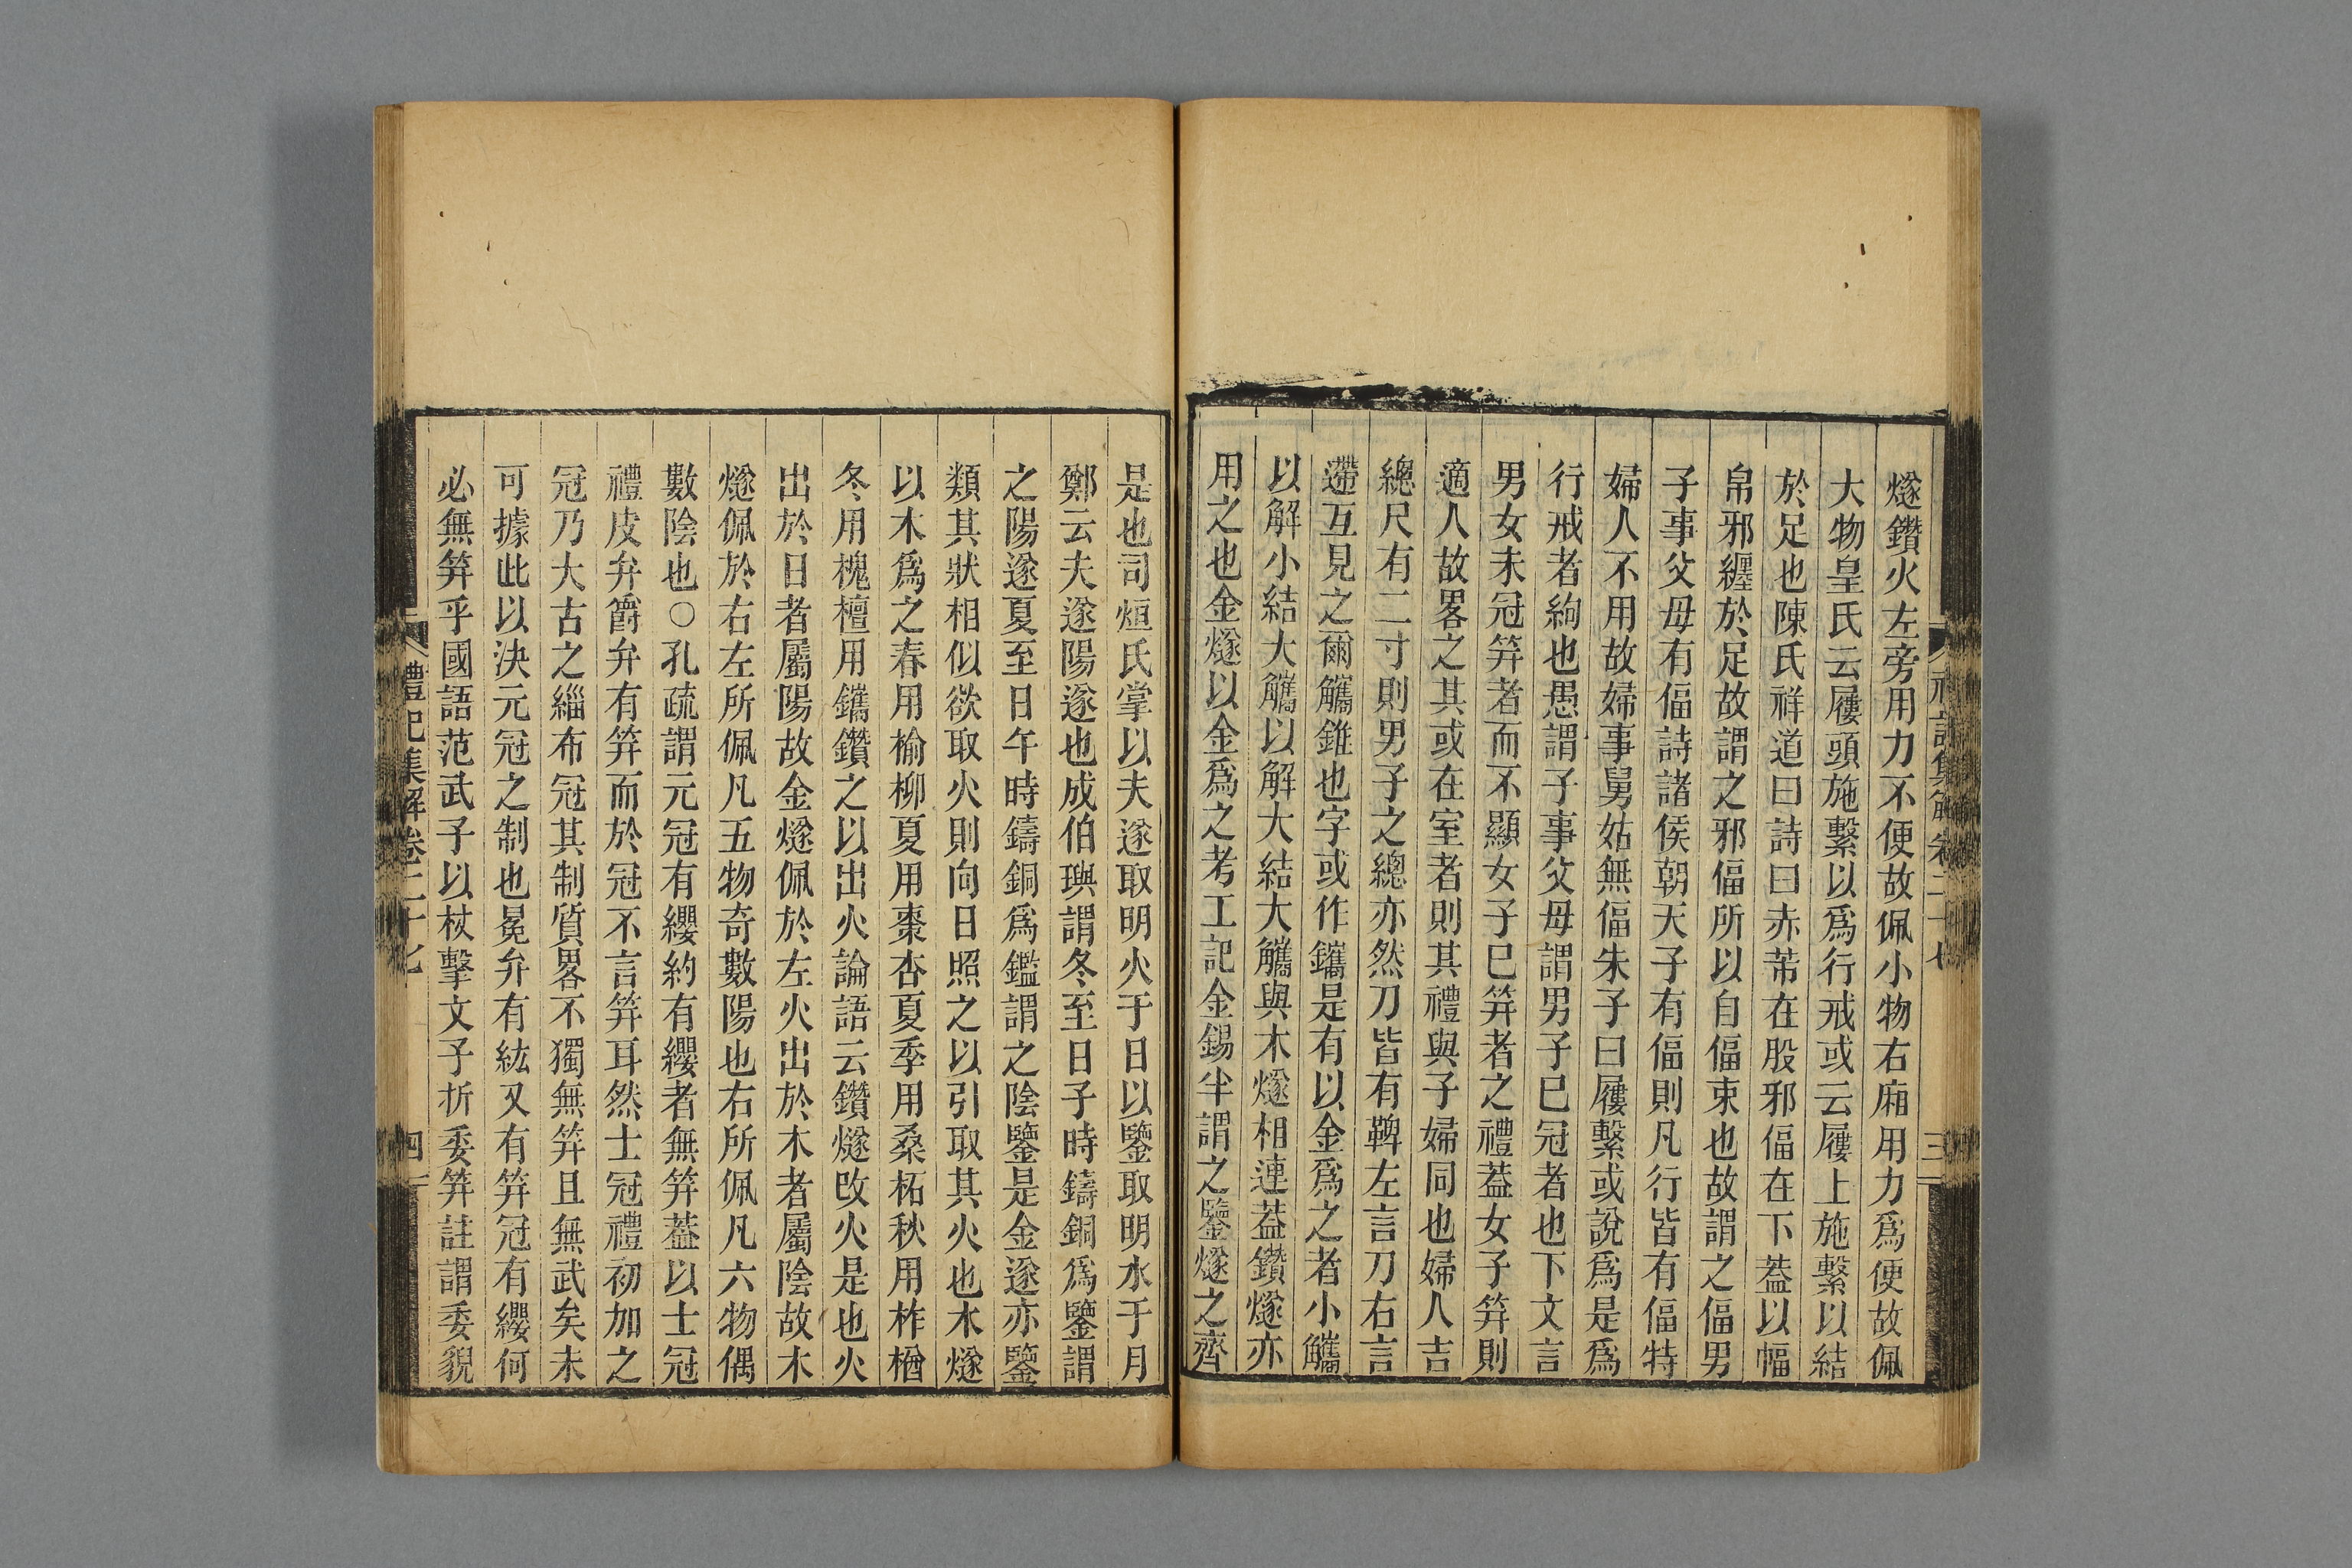 燧鑽火左旁用力不便故佩小物右廂用力爲便故佩
大物皇氏云屨頭施繫以爲行戒或云屨上施繫以結
於足也陳氏祥道曰詩曰赤芾在股邪偪在下葢以幅
帛邪纏於足故謂之邪偪所以自偪束也故謂之偪男
子事父母有偪詩諸侯朝天子有偪則凡行皆有偪特
婦人不用故婦事舅姑無偪朱子曰屨繫或說爲是爲
行戒者絇也愚謂子事父母謂男子已冠者也下文言
男女未冠笄者而不顯女子已笄者之禮葢女子笄則
適人故畧之其或在室者則其禮與子婦同也婦人吉
總尺有二寸則男子之總亦然刀皆有鞞左言刀右言
遰互見之爾觿錐也字或作鑴是有以金爲之者小觿
以解小結大觿以解大結大觿與木燧相連葢鑽燧亦
用之也金燧以金爲之考工記金錫半謂之鑒燧之齊
是也司烜氏掌以夫遂取明火于日以鑒取明水于月
鄭云夫遂陽遂也成伯璵謂冬至日子時鑄銅爲鑒謂
之陽遂夏至日午時鑄銅爲鑑謂之陰鑒是金遂亦鑒
類其狀相似欲取火則向日照之以引取其火也木燧
以木爲之春用榆柳夏用棗杏夏季用桑柘秋用柞楢
冬用槐檀用鑴鑽之以出火論語云鑽燧改火是也火
出於日者屬陽故金燧佩於左火出於木者屬陰故木
燧佩於右左所佩凡五物奇數陽也右所佩凡六物偶
數陰也○孔疏謂元冠有纓約有纓者無笄葢以士冠
禮皮弁爵弁有笄而於冠不言笄耳然士冠禮初加之
冠乃大古之緇布冠其制質畧不獨無笄且無武矣未
可據此以決元冠之制也冕弁有紘又有笄冠有纓何
必無笄乎國語范武子以杖擊文子折委笄註謂委貌
禮記集解卷二十七
四